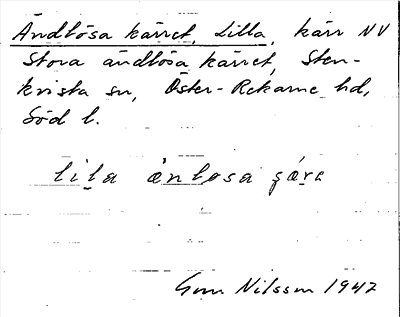 Ändlösa kärret, Lilla, kärr NV
Stora ändlösa kärret, Sten-
kvista sn, Öster-Rekarne hd,
Söd l.
lila änlosa
Nilsson 1947